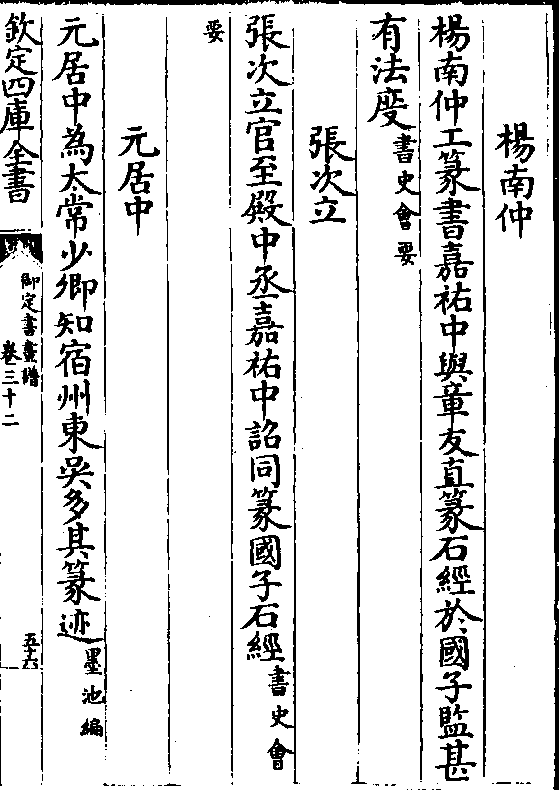 楊南仲
楊南仲工篆書嘉祐中與章友直篆石經於國子監甚
有法度書史會要
張次立
張次立官至殿中丞嘉祐中詔同篆國子石經書史會
要
元居中
元居中為太常少卿知宿州東吳多其篆迹墨池編
欽定四庫全書
御定書畫譜
卷三十二
五十六